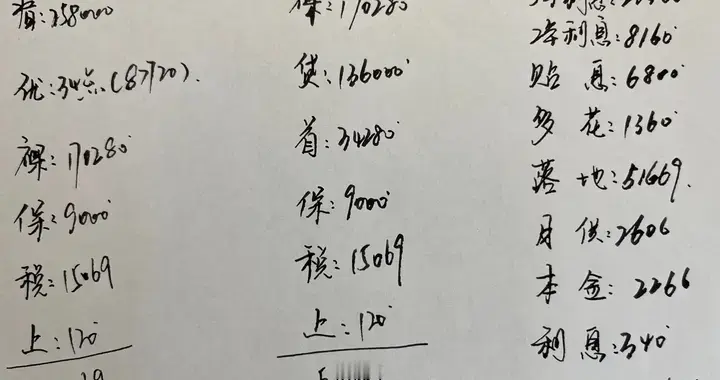 指:258000
优:34点(87720).
裸:170280
保:9000
税:15069
上:120
裸:170280
贷:136000
首:34280
保:9000
税:15069
上:120
2年利息:8160
贴息:6800
多花:1360
落地:51669.
月供:2606
本金:2266
利息:340